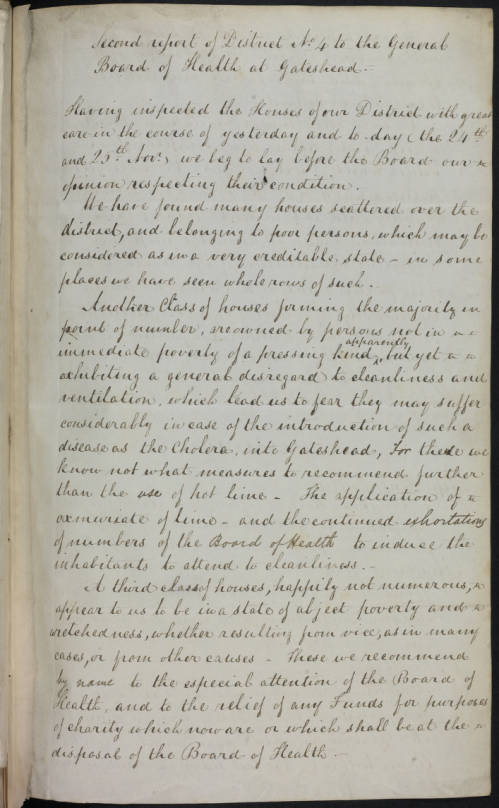 Second report of District No. 4 to the General
Board of Health at Gateshead.—
Having inspected the Houses of our District with great
care in the course of yesterday and to-day (the 24th
and 25th Novr.) we beg to lay before the Board our
opinion respecting their condition.
We have found many houses scattered over the
district, and belonging to poor persons, which may be
considered as in a very creditable, state — in some
places we have seen whole rows of such.
Another Class of houses forming the majority in
point of number, are owned by persons not in
immediate poverty of a pressing kind, apparently, but yet
exhibiting a general disregard to cleanliness and
ventilation, which lead us to fear they may suffer
considerably in case of the introduction of such a
disease as the Cholera, into Gateshead, For these we
know not what measures to recommend further
than the use of hot lime — The application of
oxmuriate of lime — and the continued exhortations
of numbers of the Board of Health to induce the
inhabitants to attend to cleanliness.—
A third class of houses, happily not numerous,
appear to us to be in a state of abject poverty and
wretchedness, whether resulting from vice, as in many
cases, or from other causes — These we recommend
by name to the especial attention of the Board of
Health, and to the relief of any Funds for purposes
of charity which now are or which shall be at the
disposal of the Board of Health.—